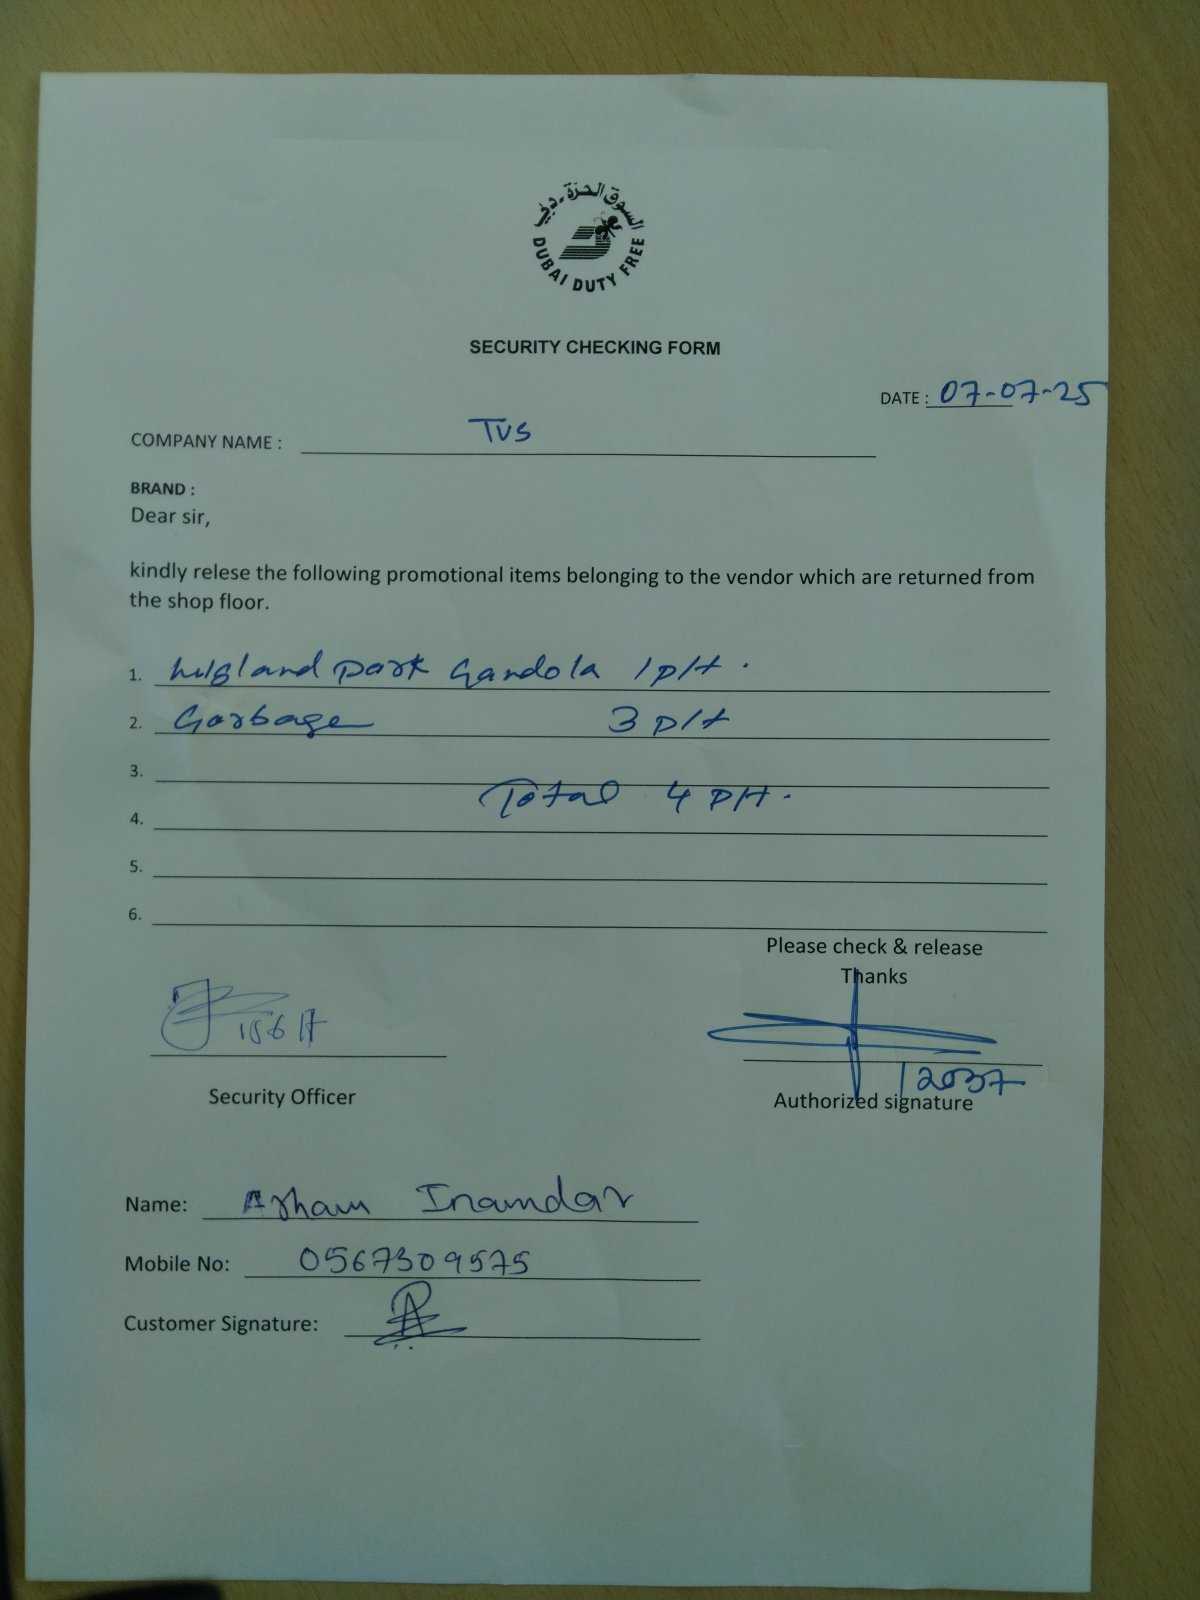 السوق الحرة - دبي
DUBAI DUTY FREE
SECURITY CHECKING FORM
DATE : 07-07-25
COMPANY NAME : TVS
BRAND :
Dear sir,
kindly relese the following promotional items belonging to the vendor which are returned from
the shop floor.
1. Highland park Gandola 1 plt.
2. Garbage 3 plt
3.
Total 4 plt.
4.
5.
6.
Please check & release
Thanks
12037
Security Officer
Authorized signature
Name: Arham Inamdar
Mobile No: 0567309575
Customer Signature: